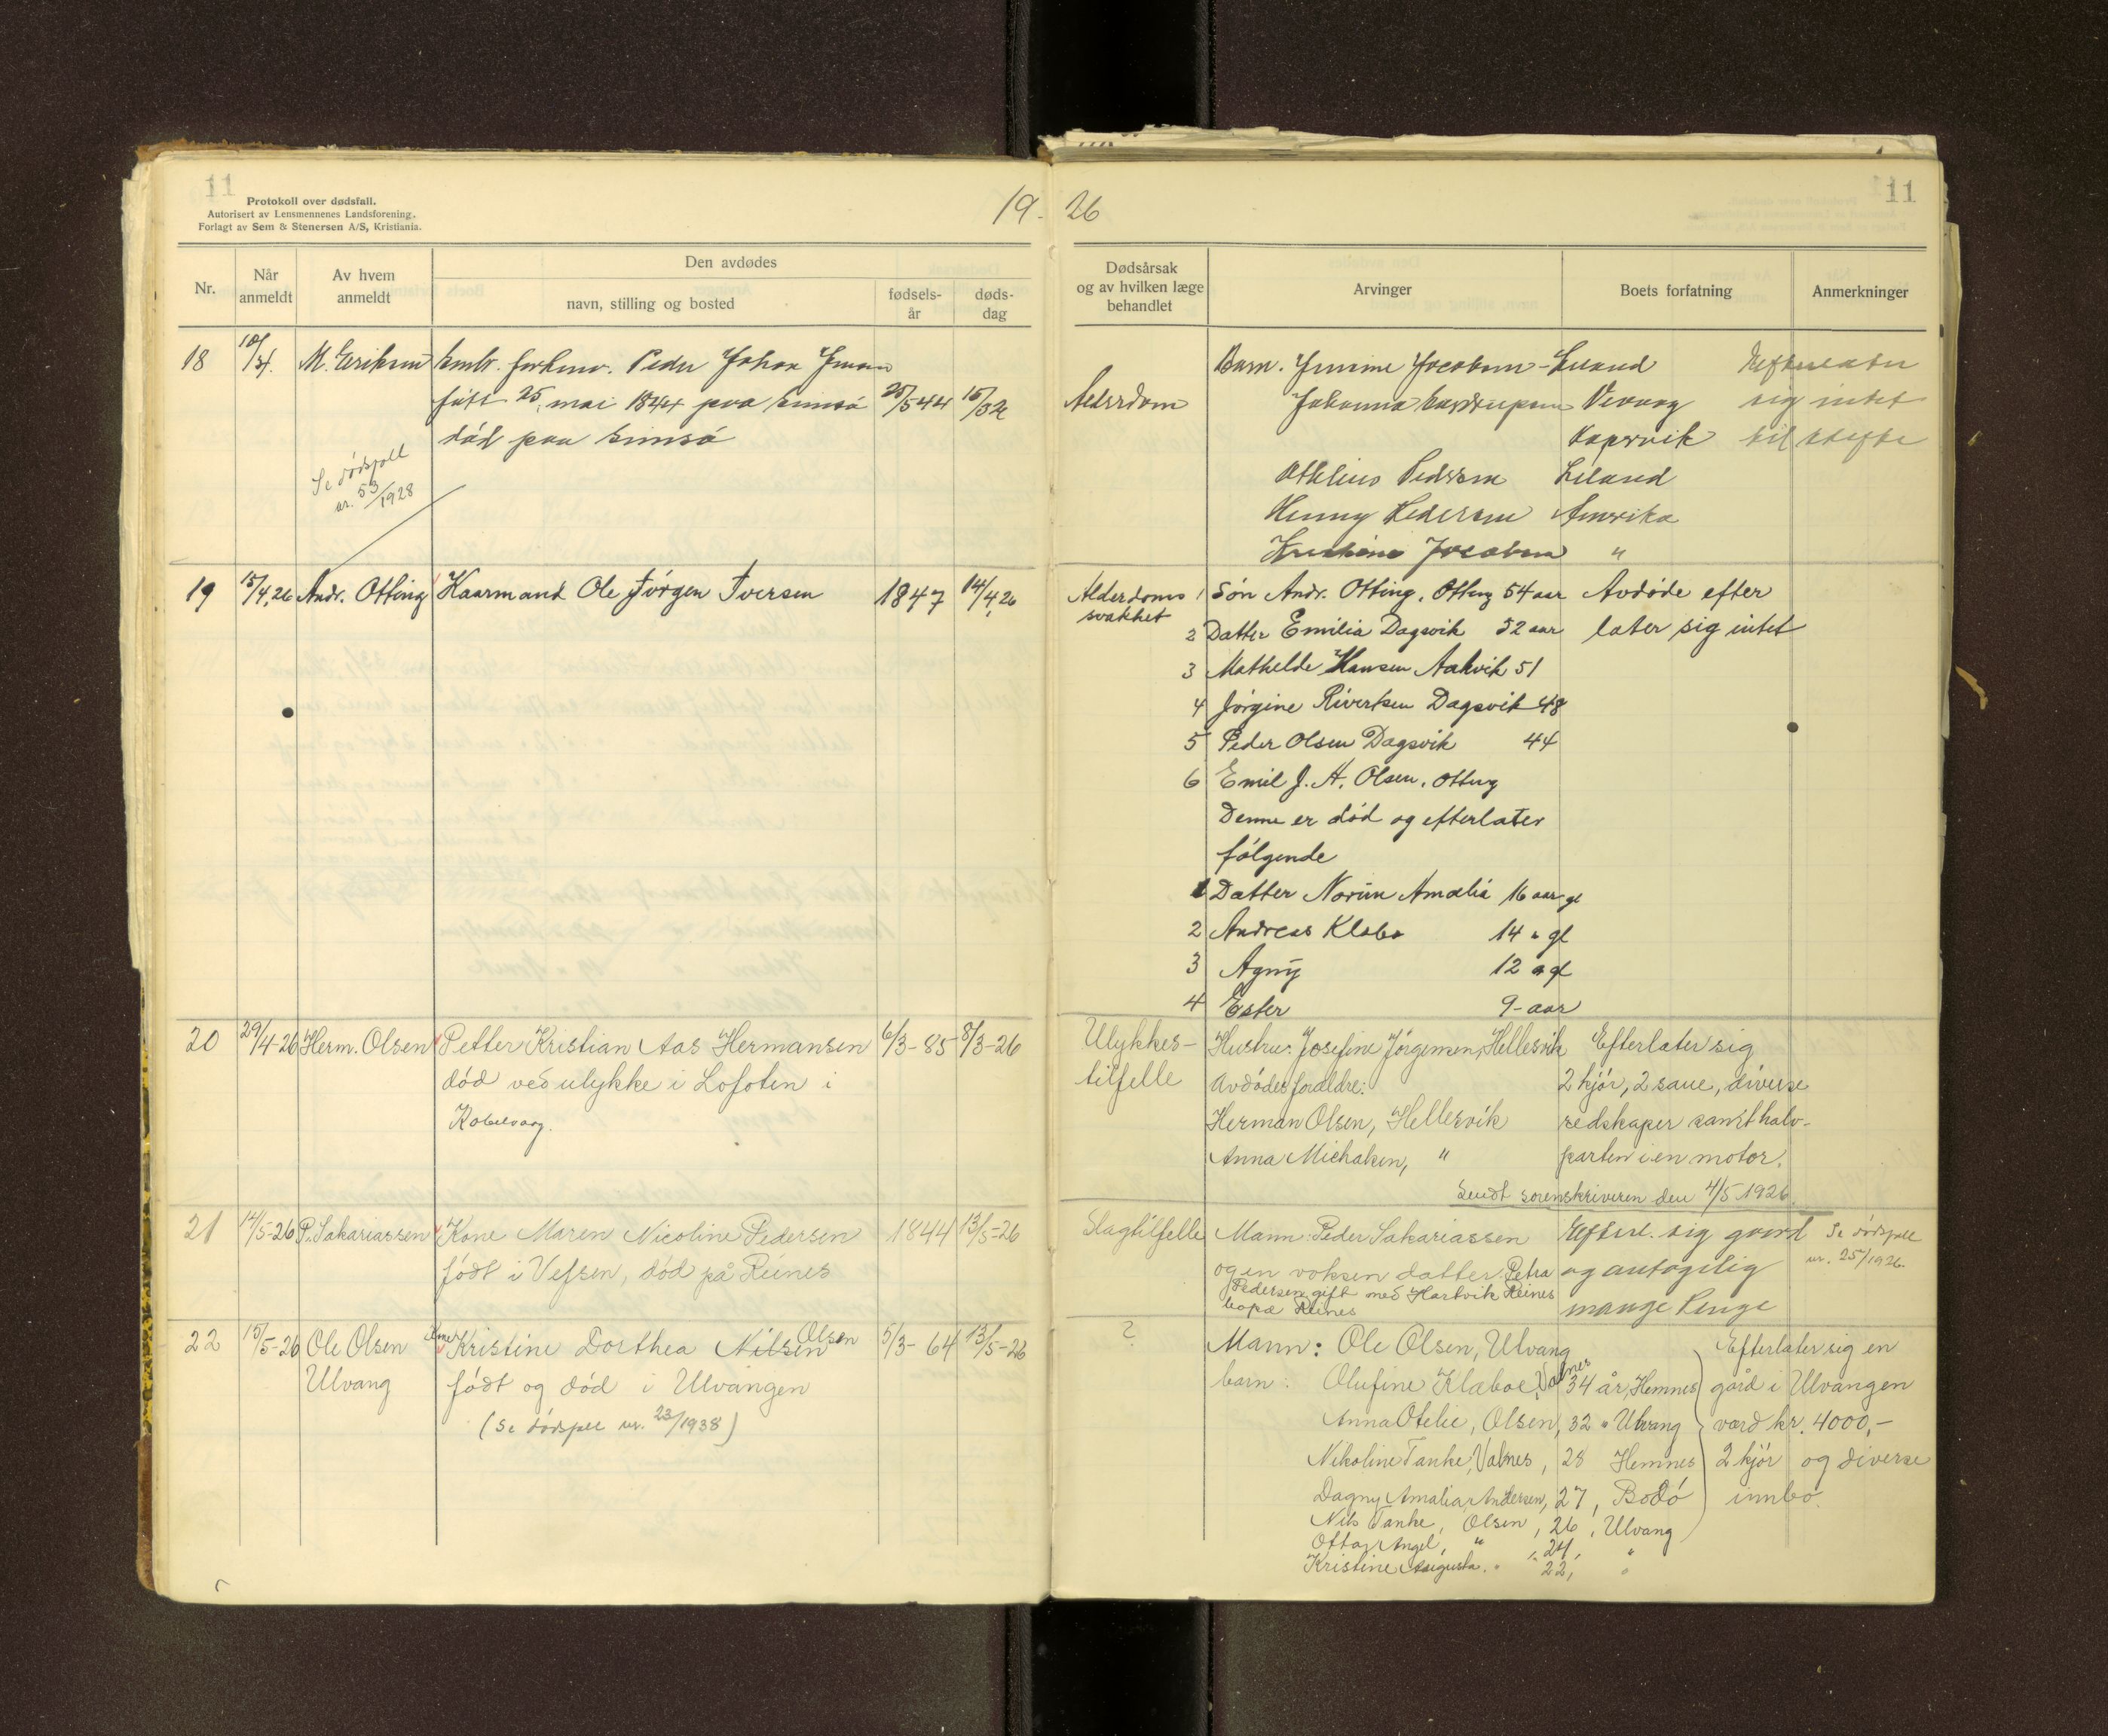 11
Protokoll over dødsfall.
Autorisert av Lensmennenes Landsforening.
Forlagt av Sem & Stenersen A/S, Kristiania.
19-26
11
Nr.
Når anmeldt
Av hvem anmeldt
Den avdødes
navn, stilling og bosted
fødsels-år
døds-dag
Dødsårsak og av hvilken læge behandlet
Arvinger
Boets forfatning
Anmerkninger
18
M. Eriksen
Peder Johan
født 25. mai 1844 paa
25/5 44
død paa
Se dødsfall
nr. 53/1928
Alderdom
Barn.
Leland
Efterlater
Johanna
sig intet
til skifte
Pedersen Leland
Henny Pedersen Amerika
Jacobsen "
19 15/4.26 Andr. Otting Kaarmand Ole Jörgen Iversen 1847 14/4 26
Alderdoms
svakhet
1 Sön Andr. Otting, Otting 54 aar
Avdöde efter
2 Datter Emilia Dagsvik 52 aar
later sig intet
3 Mathelde Hansen Aakvik 51
4 Jörgine Rivertsen Dagsvik 48
5 Peder Olsen Dagsvik 44
6 Emil J. A. Olsen, Otting
Denne er död og efterlater
fölgende
1 Datter Amalia 16 aar gl
2 Andreas Klabo 14 " gl
3 Agny 12 " gl
4 Ester 9- aar
20 29/4-26 Herm. Olsen Petter Kristian Aas Hermansen 6/3-85 8/3-26
død ved ulykke i Lofoten i
Kabelvaag.
Ulykkes-
tilfelle
Hustru: Josefine Jörgensen, Hellesvik
Efterlater sig
Avdödes foreldre:
2 kjör, 2 saue, diverse
Herman Olsen, Hellesvik
redskaper samt halv-
Anna Michalsen, "
parten i en motor.
Sendt sorenskriveren den 4/5 1926.
21 14/5-26 P. Sakariassen Kone Maren Nicoline Pedersen 1844 13/5-26
født i Vefsen, død på Reines
Slagtilfelle
Mann: Peder Sakariassen
Efterl. sig gaard
Se dødsfall
og en voksen datter Petra
og antagelig
nr. 25/1926.
Pedersen gift med Hartvik Reines
mange Penge
bopæl Reines
22 15/5-26 Ole Olsen Kone Kristine Dorthea Nilsen Olsen 5/3-64 13/5-26
Ulvang
født og død i Ulvangen
(Se dødsfall nr. 23/1938)
?
Mann: Ole Olsen, Ulvang
Efterlater sig en
barn: Olufine Klæboe, Valnes 34 år, Hemnes
gård i Ulvangen
Anna Otelie, Olsen, 32 " Ulvang
værd kr. 4000,-
Nikoline Tanke, Valnes, 28 Hemnes
2 kjör og diverse
Dagny Amalia Andersen, 27, Bodö
innbo.
Nils Tanke, Olsen, 26, Ulvang
Ottar Angel, " , 24, "
Kristine Augusta. " 22, "